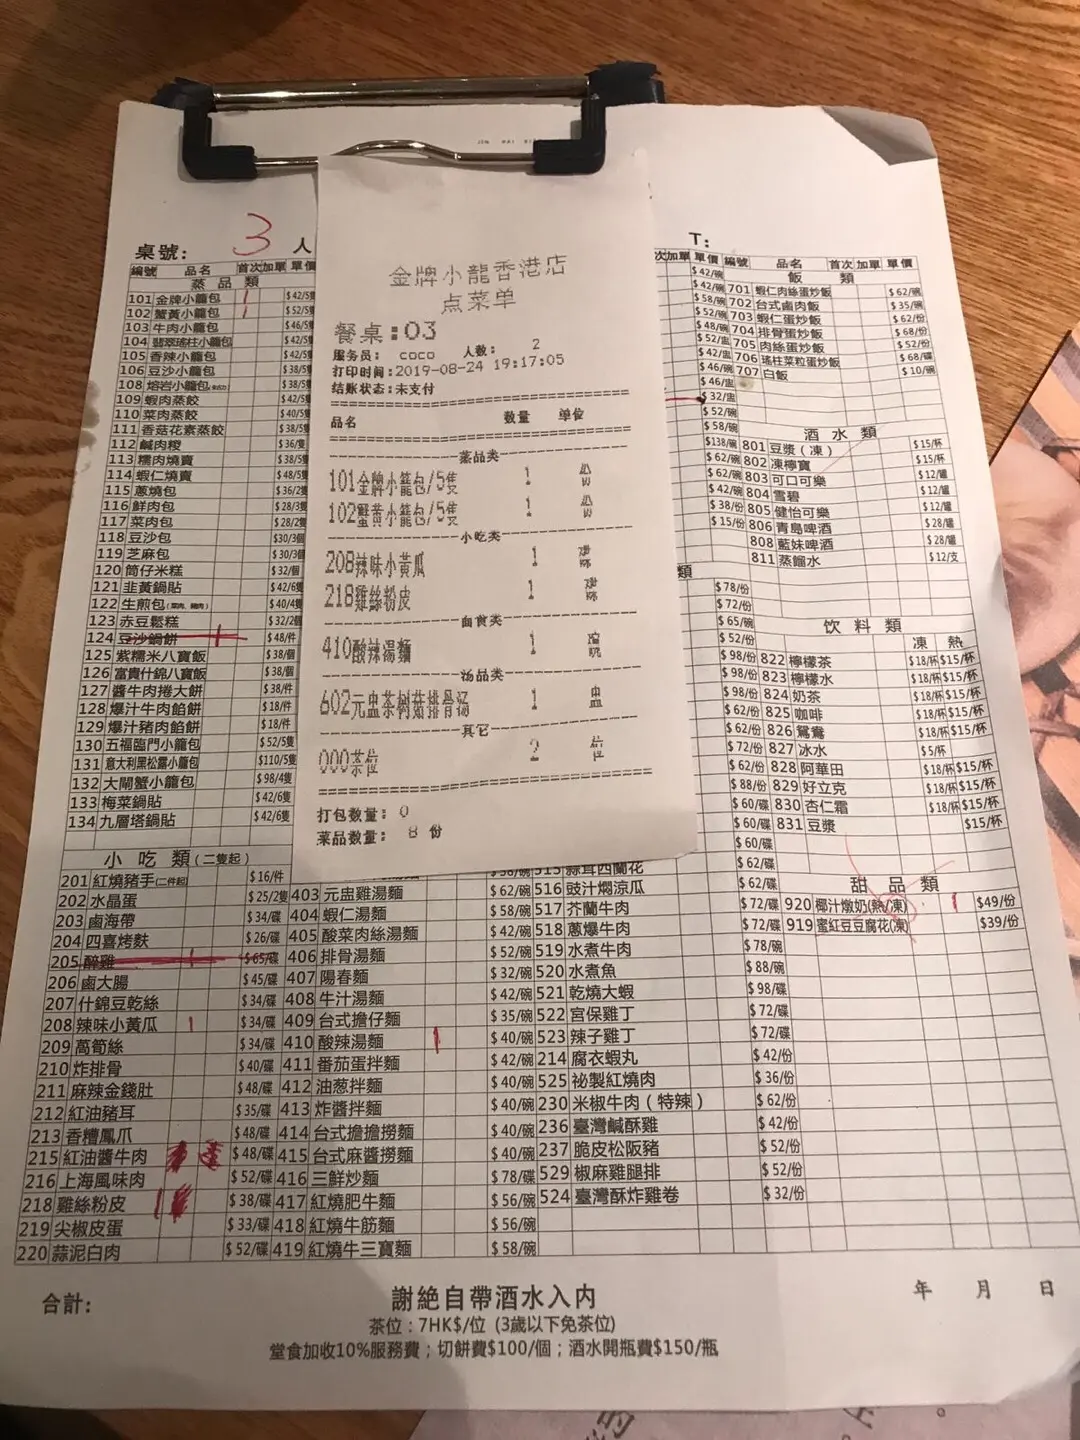 桌號: 3 人
T:
金牌小龍香港店
点菜单
餐桌:03
服务员: coco 人数: 2
打印时间:2019-08-24 19:17:05
结账状态:未支付
品名 数量 单位
蒸品类
101金牌小籠包/5隻 1 份
102蟹黃小籠包/5隻 1 份
小吃类
208辣味小黃瓜 1 碟
218雞絲粉皮 1 碟
面食类
410酸辣湯麵 1 碗
汤品类
602元盅茶树菇排骨汤 1 盅
其它
000茶位 2 位
打包数量: 0
菜品数量: 8 份
編號 品名 首次 加單 單價
蒸品類
101 金牌小籠包 1 $42/5隻
102 蟹黃小籠包 1 $52/5隻
103 牛肉小籠包 $46/5隻
104 翡翠瑤柱小籠包 $42/5隻
105 香辣小籠包 $42/5隻
106 豆沙小籠包 $38/5隻
108 熔岩小籠包 $38/5隻
109 蝦肉蒸餃 $42/5隻
110 菜肉蒸餃 $40/5隻
111 香菇花素蒸餃 $38/5隻
112 鹹肉糉 $36/隻
113 糯肉燒賣 $38/5隻
114 蝦仁燒賣 $48/5隻
115 蔥燒包 $36/2隻
116 鮮肉包 $28/3隻
117 菜肉包 $28/2隻
118 豆沙包 $30/3個
119 芝麻包 $30/3個
120 筒仔米糕 $32/個
121 韭黃鍋貼 $42/6隻
122 生煎包 $40/4隻
123 赤豆鬆糕 $32/2個
124 豆沙鍋餅 $48/件
125 紫糯米八寶飯 $38/個
126 富貴什錦八寶飯 $38/個
127 醬牛肉捲大餅 $38/件
128 爆汁牛肉餡餅 $18/件
129 爆汁豬肉餡餅 $18/件
130 五福臨門小籠包 $52/5隻
131 意大利黑松露小籠包 $110/5隻
132 大閘蟹小籠包 $98/4隻
133 梅菜鍋貼 $42/6隻
134 九層塔鍋貼 $42/6隻
小吃類(二隻起)
201 紅燒豬手(二件起) $16/件
202 水晶蛋 $25/2隻
203 鹵海帶 $34/碟
204 四喜烤麩 $26/碟
205 醉雞 1 $65/碟
206 鹵大腸 $45/碟
207 什錦豆乾絲 $34/碟
208 辣味小黃瓜 1 $34/碟
209 萵筍絲 $34/碟
210 炸排骨 $40/碟
211 麻辣金錢肚 $48/碟
212 紅油豬耳 $35/碟
213 香糟鳳爪 $48/碟
215 紅油醬牛肉 $48/碟
216 上海風味肉 $52/碟
218 雞絲粉皮 1 $38/碟
219 尖椒皮蛋 $33/碟
220 蒜泥白肉 $52/碟
403 元盅雞湯麵 $62/碗
404 蝦仁湯麵 $58/碗
405 酸菜肉絲湯麵 $42/碗
406 排骨湯麵 $52/碗
407 陽春麵 $32/碗
408 牛汁湯麵 $42/碗
409 台式擔仔麵 $35/碗
410 酸辣湯麵 1 $40/碗
411 番茄蛋拌麵 $42/碗
412 油葱拌麵 $40/碗
413 炸醬拌麵 $40/碗
414 台式擔擔撈麵 $40/碗
415 台式麻醬撈麵 $40/碗
416 三鮮炒麵 $78/碟
417 紅燒肥牛麵 $56/碗
418 紅燒牛筋麵 $56/碗
419 紅燒牛三寶麵 $58/碗
515 蒜茸西蘭花 $62/碟
516 豉汁燜涼瓜 $62/碟
517 芥蘭牛肉 $72/碟
518 蔥爆牛肉 $72/碟
519 水煮牛肉 $78/碗
520 水煮魚 $88/碗
521 乾燒大蝦 $98/碟
522 宮保雞丁 $72/碟
523 辣子雞丁 $72/碟
214 腐衣蝦丸 $42/份
525 祕製紅燒肉 $36/份
230 米椒牛肉(特辣) $62/份
236 臺灣鹹酥雞 $42/份
237 脆皮松阪豬 $52/份
529 椒麻雞腿排 $52/份
524 臺灣酥炸雞卷 $32/份
編號 品名 首次 加單 單價
飯類
701 蝦仁肉絲蛋炒飯 $62/碗
702 台式鹵肉飯 $35/碗
703 蝦仁蛋炒飯 $62/份
704 排骨蛋炒飯 $68/份
705 肉絲蛋炒飯 $52/份
706 瑤柱菜粒蛋炒飯 $68/碟
707 白飯 $10/碗
酒水類
801 豆漿(凍) $15/杯
802 凍檸寶 $15/杯
803 可口可樂 $12/罐
804 雪碧 $12/罐
805 健怡可樂 $12/罐
806 青島啤酒 $28/罐
808 藍妹啤酒 $28/罐
811 蒸餾水 $12/支
飲料類
凍 熱
822 檸檬茶 $18/杯 $15/杯
823 檸檬水 $18/杯 $15/杯
824 奶茶 $18/杯 $15/杯
825 咖啡 $18/杯 $15/杯
826 鴛鴦 $18/杯 $15/杯
827 冰水 $5/杯
828 阿華田 $18/杯 $15/杯
829 好立克 $18/杯 $15/杯
830 杏仁霜 $18/杯 $15/杯
831 豆漿 $15/杯
甜品類
920 椰汁燉奶(熱/凍) 1 $49/份
919 蜜紅豆豆腐花(凍) $39/份
合計:
年 月 日
謝絕自帶酒水入内
茶位:7HK$/位 (3歲以下免茶位)
堂食加收10%服務費;切餅費$100/個;酒水開瓶費$150/瓶